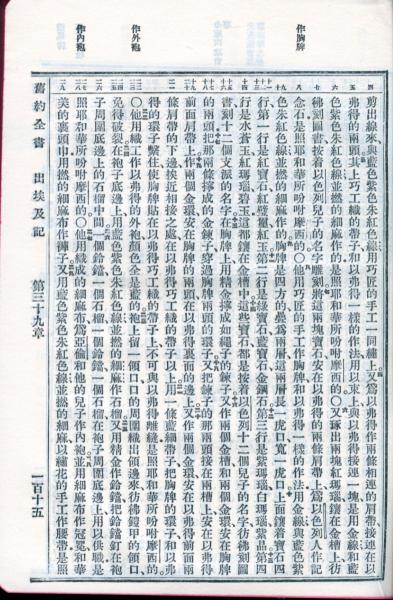 作胸牌
作外袍
作內袍
剪出線來與藍色紫色朱紅色線用巧匠的手工一同繡上又爲以弗得作兩條相連的肩帶接連在以
弗得的兩頭其上巧工織的帶子和以弗得一樣的作法用以束上與以弗得接連一塊是用金線和藍
色紫色朱紅色線並撚的細麻作的是照耶和華所吩咐摩西的〇又琢出兩塊紅瑪瑙鑲在金槽上彷
彿刻圖書按着以色列兒子的名字雕刻將這兩塊寶石安在以弗得的兩條肩帶上爲以色列人作記
念石是照耶和華所吩咐摩西的〇他用巧匠的手工作胸牌和以弗得一樣的作法用金線與藍色紫
色朱紅色線並撚的細麻作的胸牌是四方的疊爲兩層這兩層長一虎口寬一虎口上面鑲着寶石四
行第一行是紅寶石紅璧璽紅玉第二行是綠寶石藍寶石金鋼石第三行是紫瑪瑙白瑪瑙紫晶第四
行是水蒼玉紅瑪瑙碧玉這都鑲在金槽中這些寶石都是按着以色列十二個兒子的名字彷彿刻圖
書刻十二個支派的名字在胸牌上用精金擰成如繩子的鍊子又作兩個金槽和兩個金環安在胸牌
的兩頭把那兩條擰成的金鍊子穿過胸牌兩頭的環子又把鍊子的那兩頭接在兩槽上安在以弗得
前面肩帶上作兩個金環安在胸牌的兩頭在以弗得裏面的邊上又作兩個金環安在以弗得前面兩
條肩帶的下邊挨近相接之處在以弗得巧工織的帶子以上用一條藍細帶子把胸牌的環子和以弗
得的環子繫住使胸牌貼在以弗得巧工織的帶子上不可與以弗得離縫是照耶和華所吩咐摩西的
〇他用織工作以弗得的外袍顏色全是藍的袍上留一領口口的周圍織出領邊來彷彿鎧甲的領口
免得破裂在袍子底邊上用藍色紫色朱紅色線並撚的細麻作石榴又用精金作鈴鐺把鈴鐺釘在袍
子周圍底邊上的石榴中間一個鈴鐺一個石榴一個鈴鐺一個石榴在袍子周圍底邊上用以供職是
照耶和華所吩咐摩西的〇他用織成的細麻布爲亞倫和他的兒子作內袍並用細麻布作冠冕和華
美的裹頭巾用撚的細麻布作褲子又用藍色紫色朱紅色線並撚的細麻以繡花的手工作腰帶是照
舊約全書 出埃及記 第三十九章 一百十五